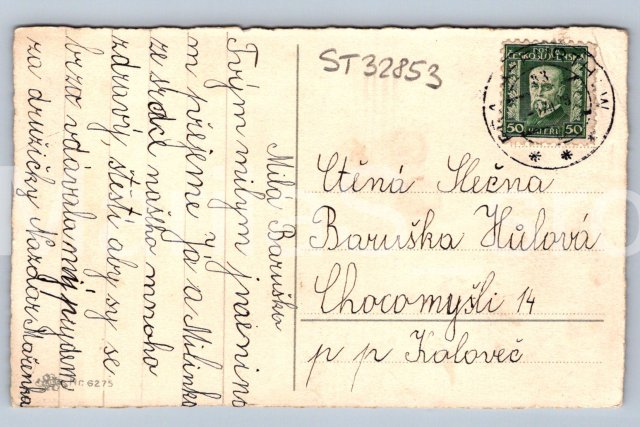 Milá Baruško
Tvým milým jmeninom
m přejeme Já a Milinka
ze srdce našho mnoho
zdraví, štestí aby sy se
brzo vdávala my prijdem
za družičky Nazdar Mařenka
ST32853
POŠTA
ČESKOSLOVENSKÁ
50 HALÉŘŮ 50
Ctěná Slečna
Baruška Hůlová
Chocomyšli 14
p p Koloveč
6275